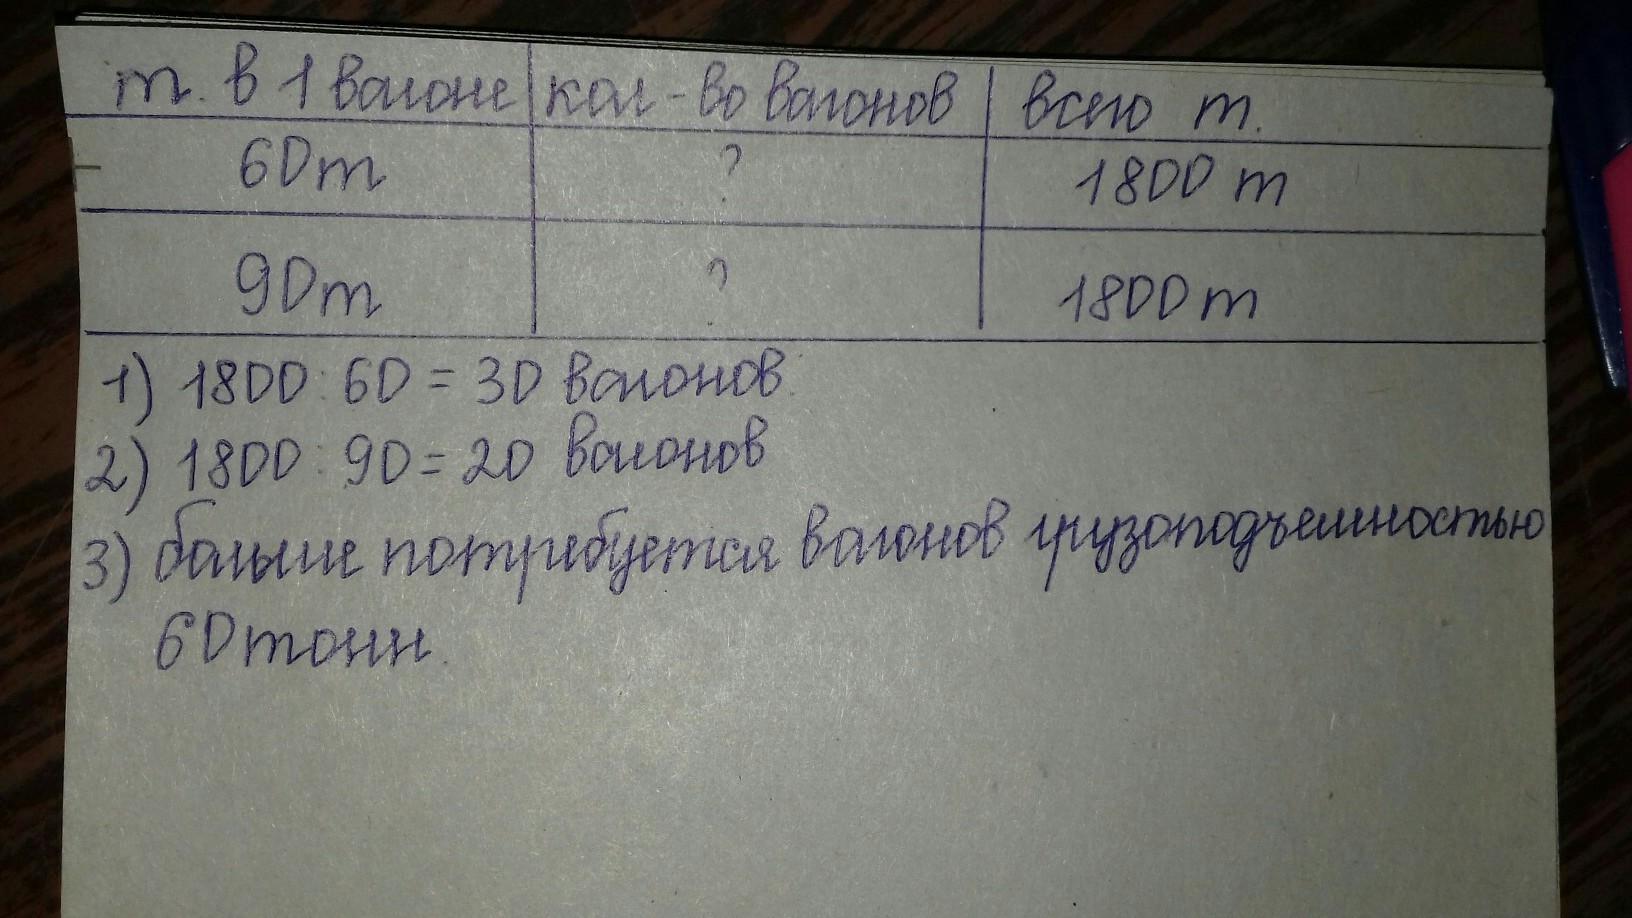 т. в 1 вагоне кол-во вагонов всего т.
60т ? 1800 т
90т ? 1800 т
1) 1800 : 60 = 30 вагонов.
2) 1800 : 90 = 20 вагонов
3) больше потребуется вагонов грузоподъемностью
60 тонн.